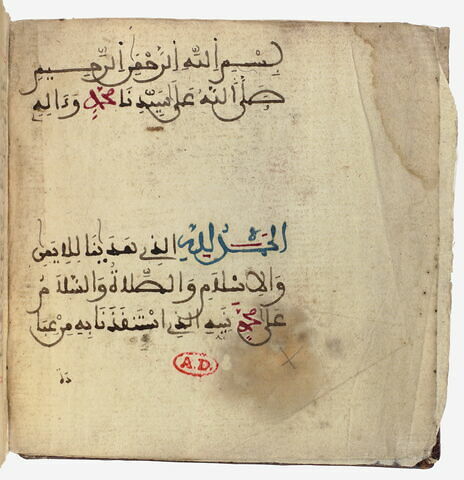 بسم الله الرحمن الرحيم
صلى الله على سيدنا محمد وءاله
الحمد لله الذي هدينا للايمن
والاسلام والصلاة والسلام
على محمد نبيه الذي استنقذنا به من عبا
دة
A.D.